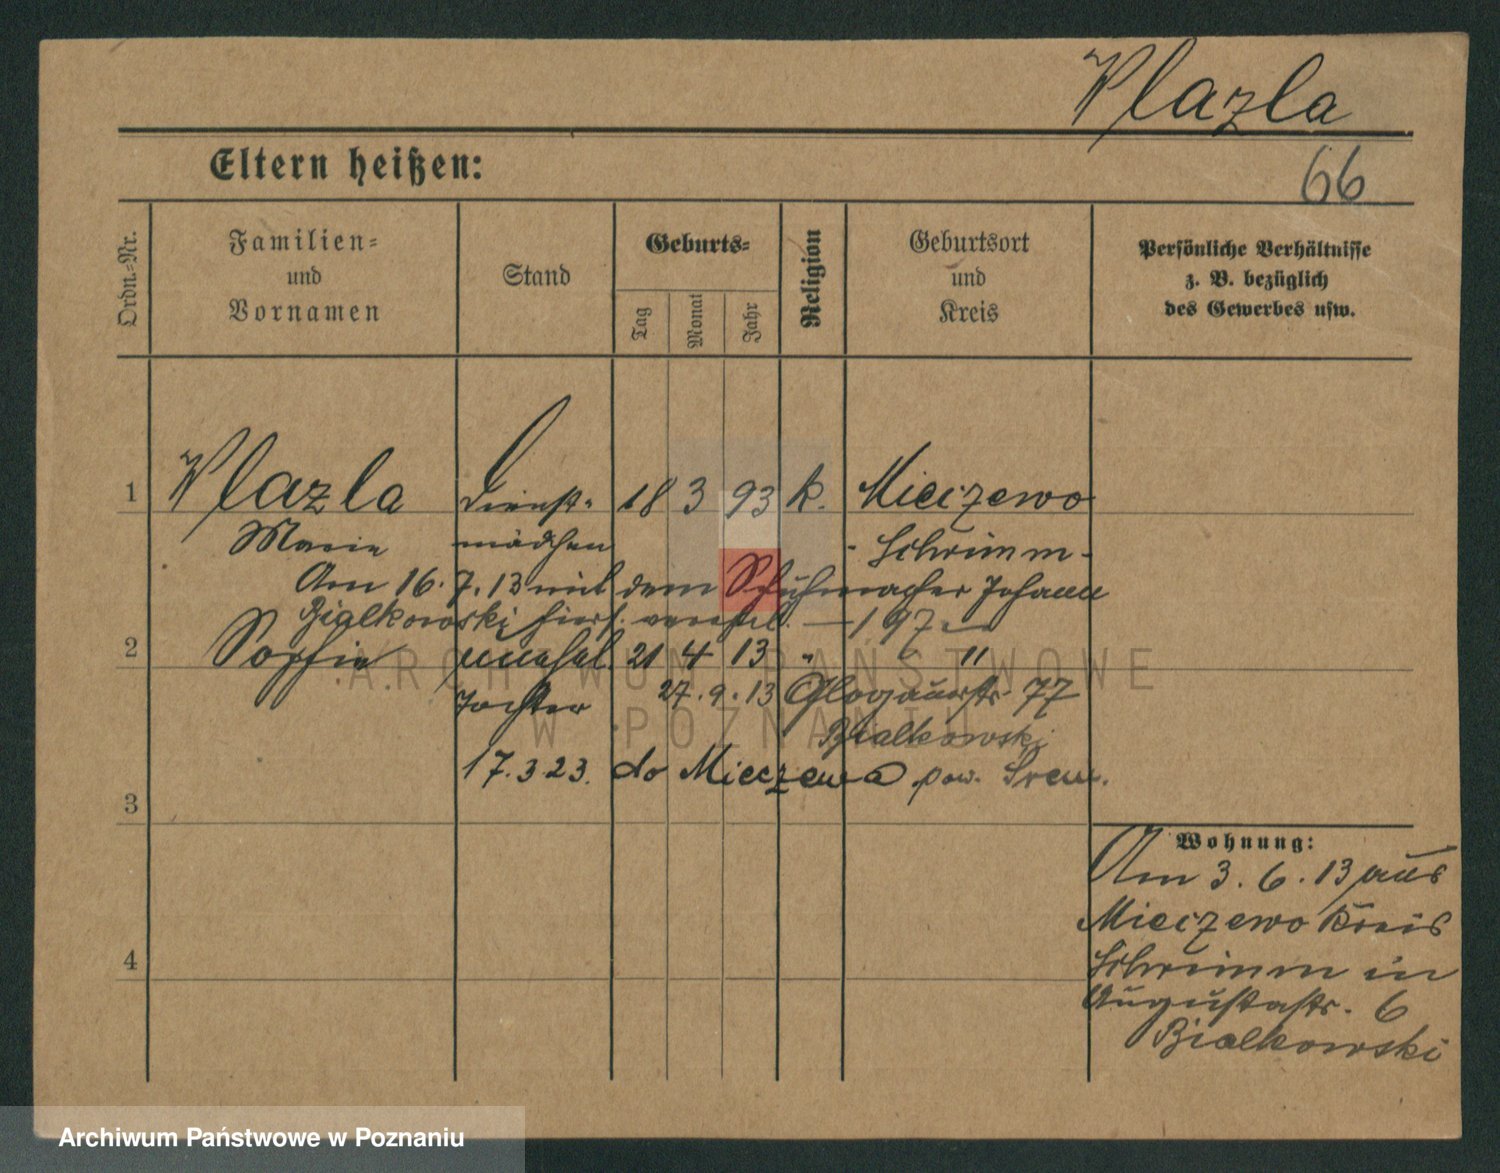 Wlazla
Eltern heißen:
66
Ordn.=Nr.
Familien=
und
Vornamen
Stand
Geburts=
Tag
Monat
Jahr
Religion
Geburtsort
und
Kreis
Persönliche Verhältnisse
z. B. bezüglich
des Gewerbes usw.
1 Wlazla Dienst- 18 3 93 k. Mieczewo
Marie mädchen - Schrimm -
Am 16. 7. 13 mit dem Schuhmacher Johann
Bialkowski hier verehel. — 197 —
2 Sophie unehel. 21 4 13 " "
Tochter 27. 9. 13 Glogauerstr. 77
Bialkowski
17. 3. 23. do Mieczewa pow. Śrem.
3
Wohnung:
Am 3. 6. 13 aus
Mieczewo Kreis
Schrimm in
4
Augustastr. 6
Bialkowski
ARCHIWUM PAŃSTWOWE
W POZNANIU
Archiwum Państwowe w Poznaniu